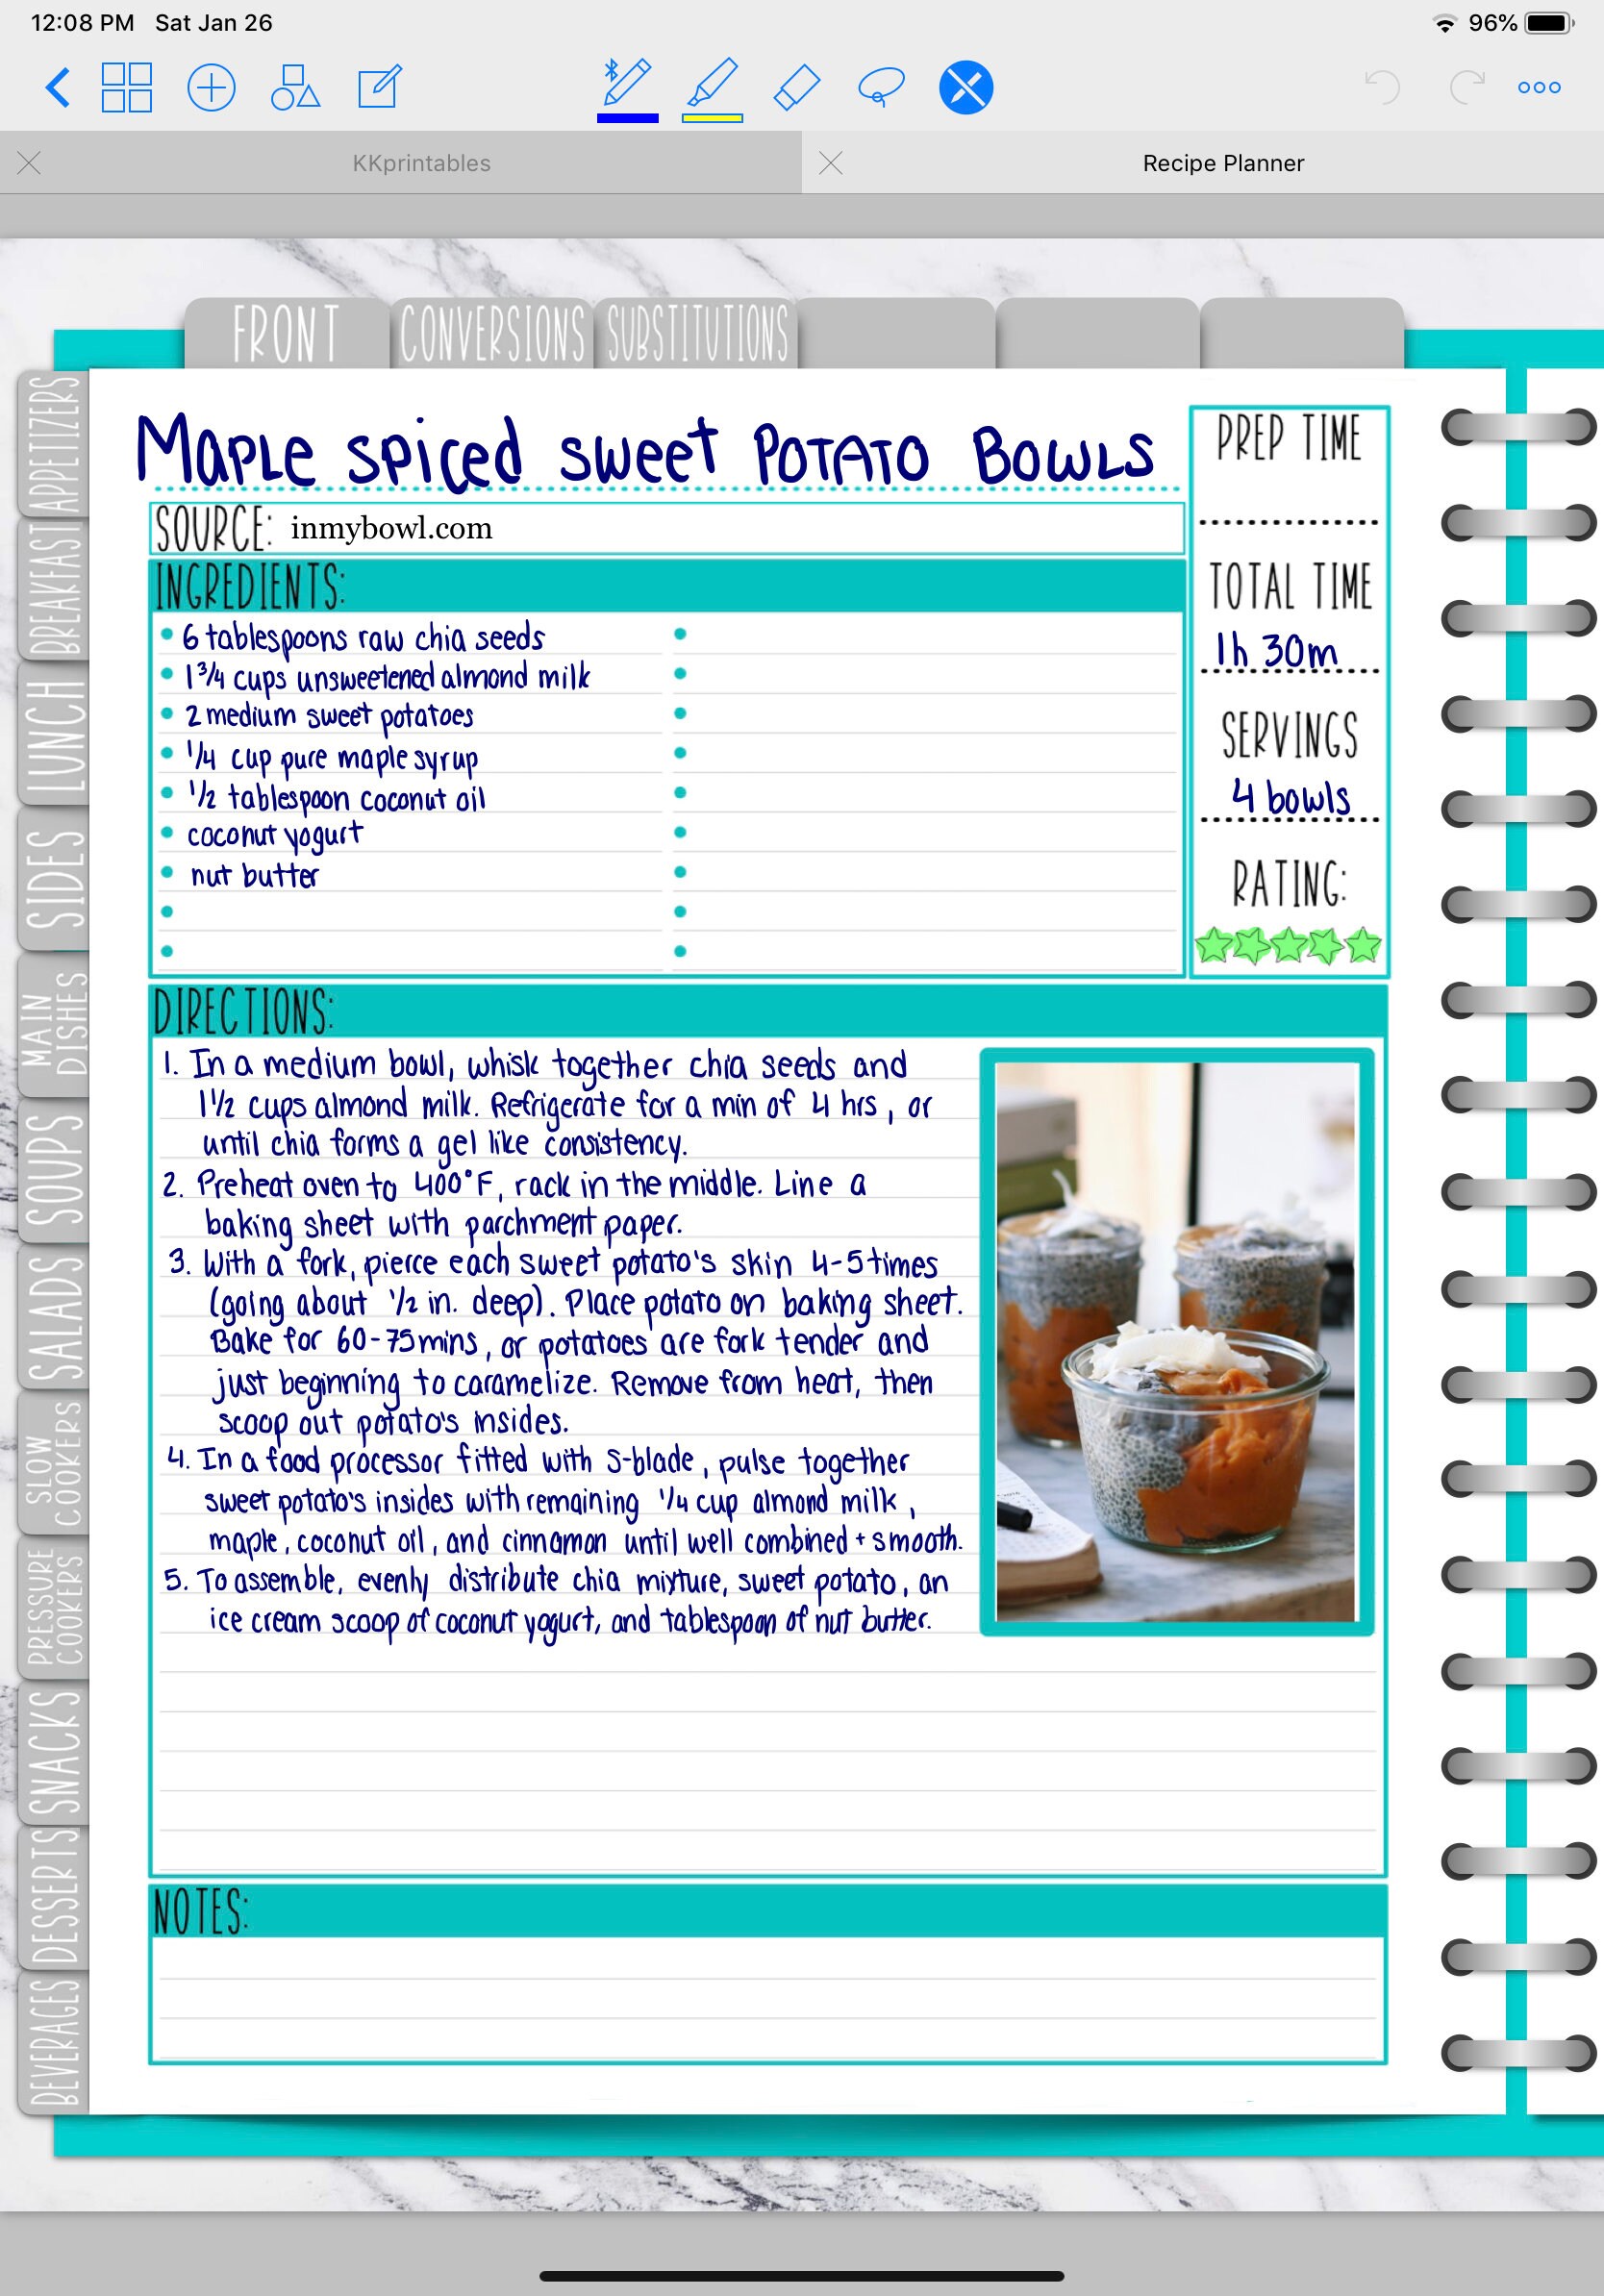 12:08 PM Sat Jan 26
96%
KKprintables
Recipe Planner
FRONT
CONVERSIONS
SUBSTITUTIONS
APPETIZERS
BREAKFAST
LUNCH
SIDES
MAIN
DISHES
SOUPS
SALADS
SLOW
COOKERS
PRESSURE
COOKERS
SNACKS
DESSERTS
BEVERAGES
Maple spiced sweet Potato Bowls
SOURCE: inmybowl.com
PREP TIME
TOTAL TIME
1h 30m
SERVINGS
4 bowls
RATING:
INGREDIENTS:
6 tablespoons raw chia seeds
1 3/4 cups unsweetened almond milk
2 medium sweet potatoes
1/4 cup pure maple syrup
1/2 tablespoon coconut oil
coconut yogurt
nut butter
DIRECTIONS:
1. In a medium bowl, whisk together chia seeds and
1 1/2 cups almond milk. Refrigerate for a min of 4 hrs, or
until chia forms a gel like consistency.
2. Preheat oven to 400°F, rack in the middle. Line a
baking sheet with parchment paper.
3. With a fork, pierce each sweet potato's skin 4-5 times
(going about 1/2 in. deep). Place potato on baking sheet.
Bake for 60-75 mins, or potatoes are fork tender and
just beginning to caramelize. Remove from heat, then
scoop out potato's insides.
4. In a food processor fitted with S-blade, pulse together
sweet potato's insides with remaining 1/4 cup almond milk,
maple, coconut oil, and cinnamon until well combined + smooth.
5. To assemble, evenly distribute chia mixture, sweet potato, an
ice cream scoop of coconut yogurt, and tablespoon of nut butter.
NOTES: